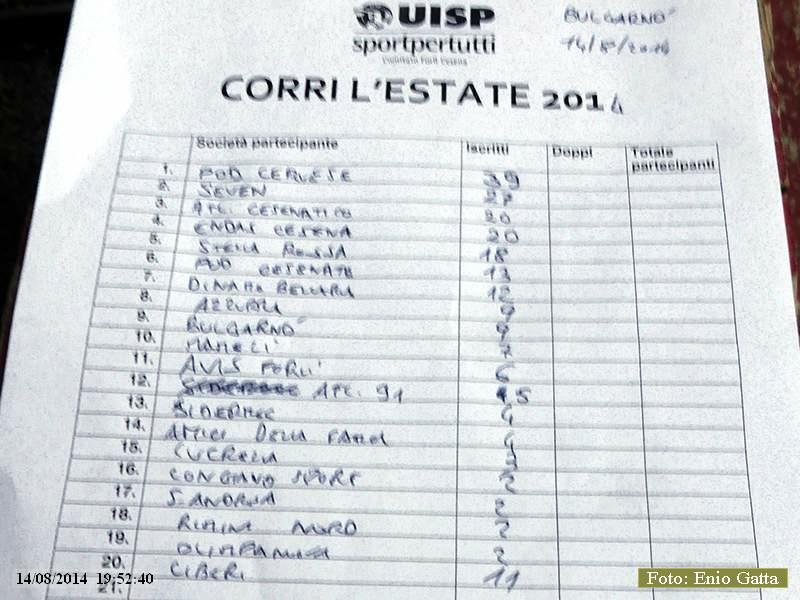 UISP
sportpertutti
Comitato Forlì Cesena
BULGARNO'
14/8/2014
CORRI L'ESTATE 2014
Società partecipante Iscritti Doppi Totale partecipanti
1. POD CERVESE 39
2. SEVEN 27
3. ATL. CESENATICO 20
4. ENDAS CESENA 20
5. STELLA ROSSA 18
6. POD CESENATE 13
7. DINAMO BELLARIA 12
8. AZZURRA 9
9. BULGARNO' 9
10. 7
11. AVIS FORLI' 6
12. ATL. 91 5
13. SIDERMEC 4
14. AMICI DELLA 4
15. 3
16. SPORT 2
17. S. ANDREA
18. RIMINI NORD 2
19. 2
20. LIBERI 11
21.
14/08/2014 19:52:40
Foto: Enio Gatta